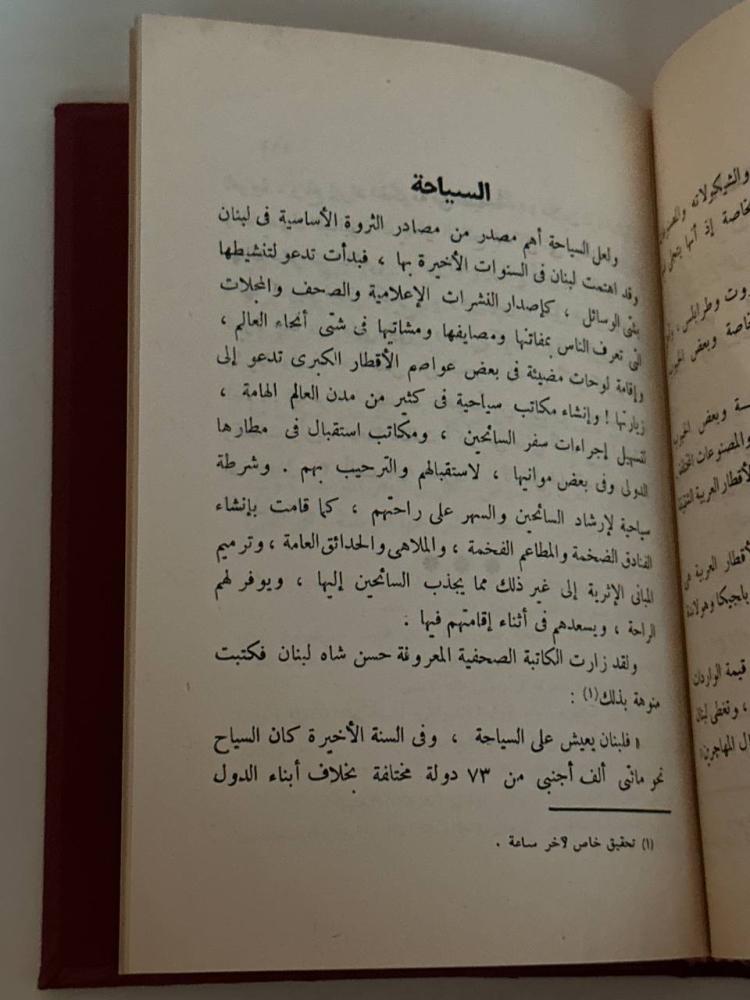 السياحة
ولعل السياحة أهم مصدر من مصادر الثروة الأساسية فى لبنان
وقد اهتمت لبنان فى السنوات الأخيرة بها ، فبدأت تدعو لتنشيطها
بشتى الوسائل ، كإصدار النشرات الإعلامية والصحف والمجلات
التى تعرف الناس بمفاتنها ومصايفها ومشاتيها فى شتى أنحاء العالم ،
وإقامة لوحات مضيئة فى بعض عواصم الأقطار الكبرى تدعو إلى
زيارتها ! وإنشاء مكاتب سياحية فى كثير من مدن العالم الهامة ،
لتسهيل إجراءات سفر السائحين ، ومكاتب استقبال فى مطارها
الدولى وفى بعض موانيها ، لاستقبالهم والترحيب بهم . وشرطة
سياحية لإرشاد السائحين والسهر على راحتهم ، كما قامت بإنشاء
الفنادق الضخمة والمطاعم الفخمة ، والملاهى والحدائق العامة ، وترميم
المبانى الإثرية إلى غير ذلك مما يجذب السائحين إليها ، ويوفر لهم
الراحة ، ويسعدهم فى أثناء إقامتهم فيها .
ولقد زارت الكاتبة الصحفية المعروفة حسن شاه لبنان فكتبت
منوهة بذلك (١) :
« فلبنان يعيش على السياحة ، وفى السنة الأخيرة كان السياح
نحو مائتى ألف أجنبى من ٧٣ دولة مختلفة بخلاف أبناء الدول
(١) تحقيق خاص لآخر ساعة .
والشيكولاته
خاصة إذ أنها
وطرابلس ،
خاصة وبعض
وبعض
والمصنوعات
الأقطار العربية
العربية
بلجيكا وهولندة
قيمة الواردات
، وتغطى لبنان
المهاجرين